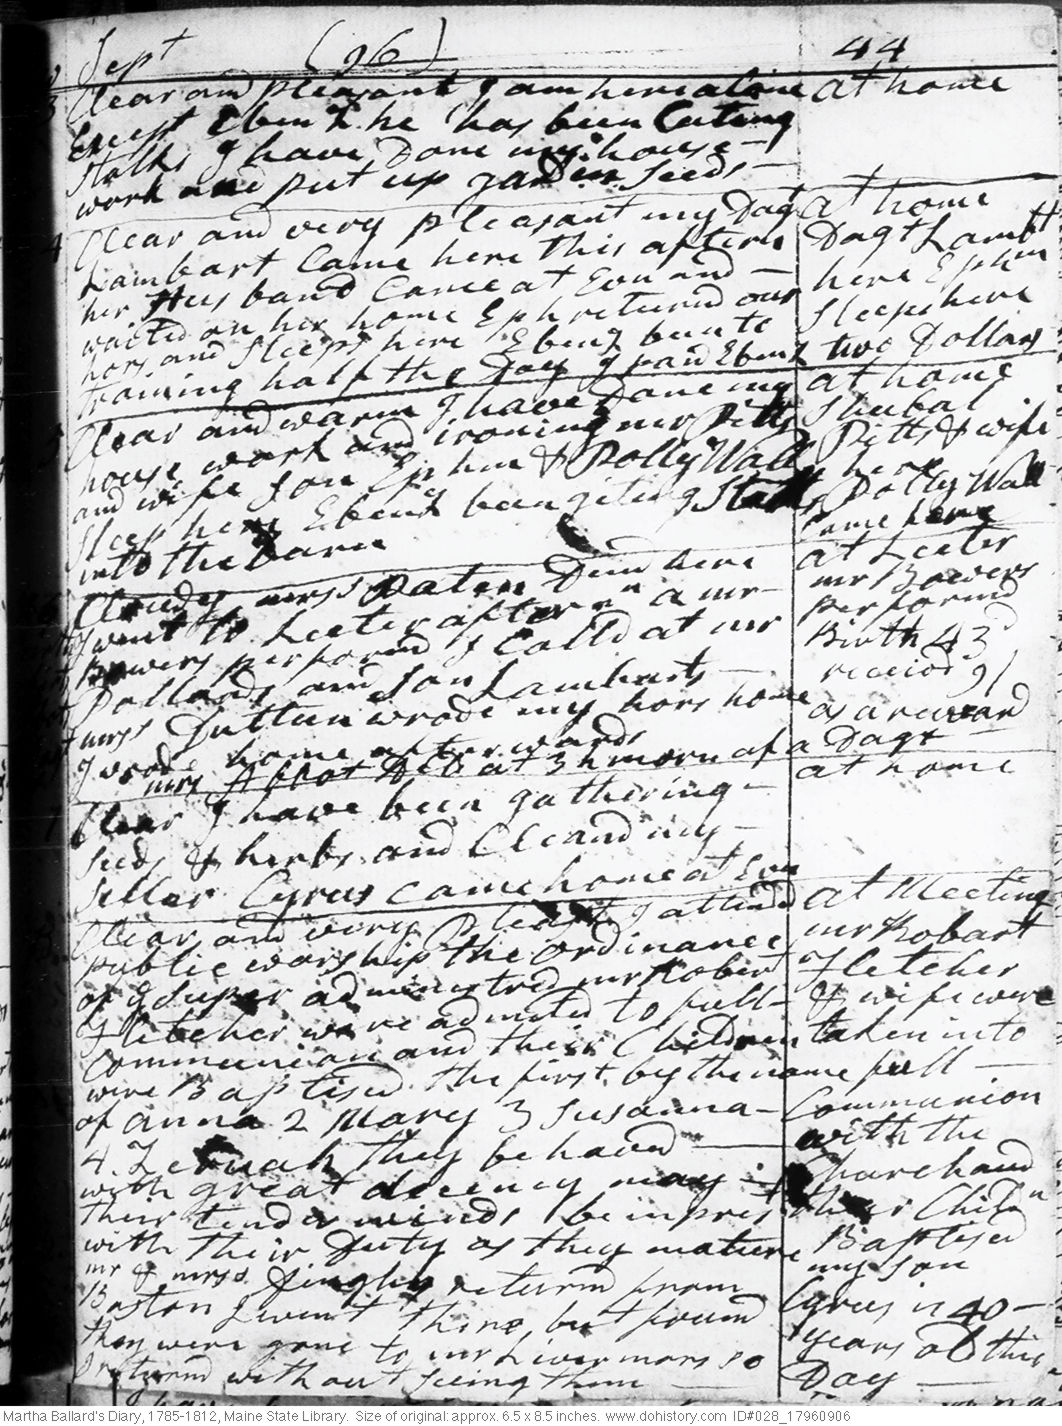 Sept (96) 44
Clear and pleasant I am here alone at home
Except Ebenz he has been Cuting
stalks I have Done my house
work and put up garDin seeds
Clear and very pleasant my Dagt at home
Lambart Came here this aftern Dagt Lambtt
her HusbanD Came at Evn and here Ephm
waitcd on her home Eph returnd our sleeps here
hors and sleeps here Ebenz been to
training half the Day I paid Ebenz two Dollars
Clear and warm I have Done my at home
house work and ironing mr Pitts Shubal
and wife son Ephm & Polly Wall Pitts & wife
sleep here Ebenz been geting Stalks here Polly Wall
into the barn Came here
Cloudy mrss Paten Dind here at Leeter
I went to Leeter aftern a mr mr Bowers
Bowers performd I CallD at mr performd
Pollards and son Lambarts Birth 43d
mrss Dutten wrode my hors home receivd 9/
I wrode home afterwards as a reward
mrs Abbot DD at 3 h morn of a Dagt
Clear I have been gathering at home
seeds & herbs and Cleand my
seller Cyrus came home at Evn
Clear and very Pleast I attend at Meeting
public worship the ordinance mr Robart
of ye super administred mr Robert Fletcher
Fletcher were admited to full & wife were
communion and their Children taken into
were Baptised the first by the name full
of anna 2 Mary 3 Susanna Communion
4. Zeruah they behaved with the
with great decency may Church and
their tender minds be imprest their Childn
with their Duty as they mature Baptised
mr & mrss Dingley returnd from my son
Boston I went there, but found Cyrus is 40
they were gone to mr Livermors so years old this
I returnd without seeing them Day
Martha Ballard's Diary, 1785-1812, Maine State Library. Size of original: approx. 6.5 x 8.5 inches. www.dohistory.com ID#028_17960906